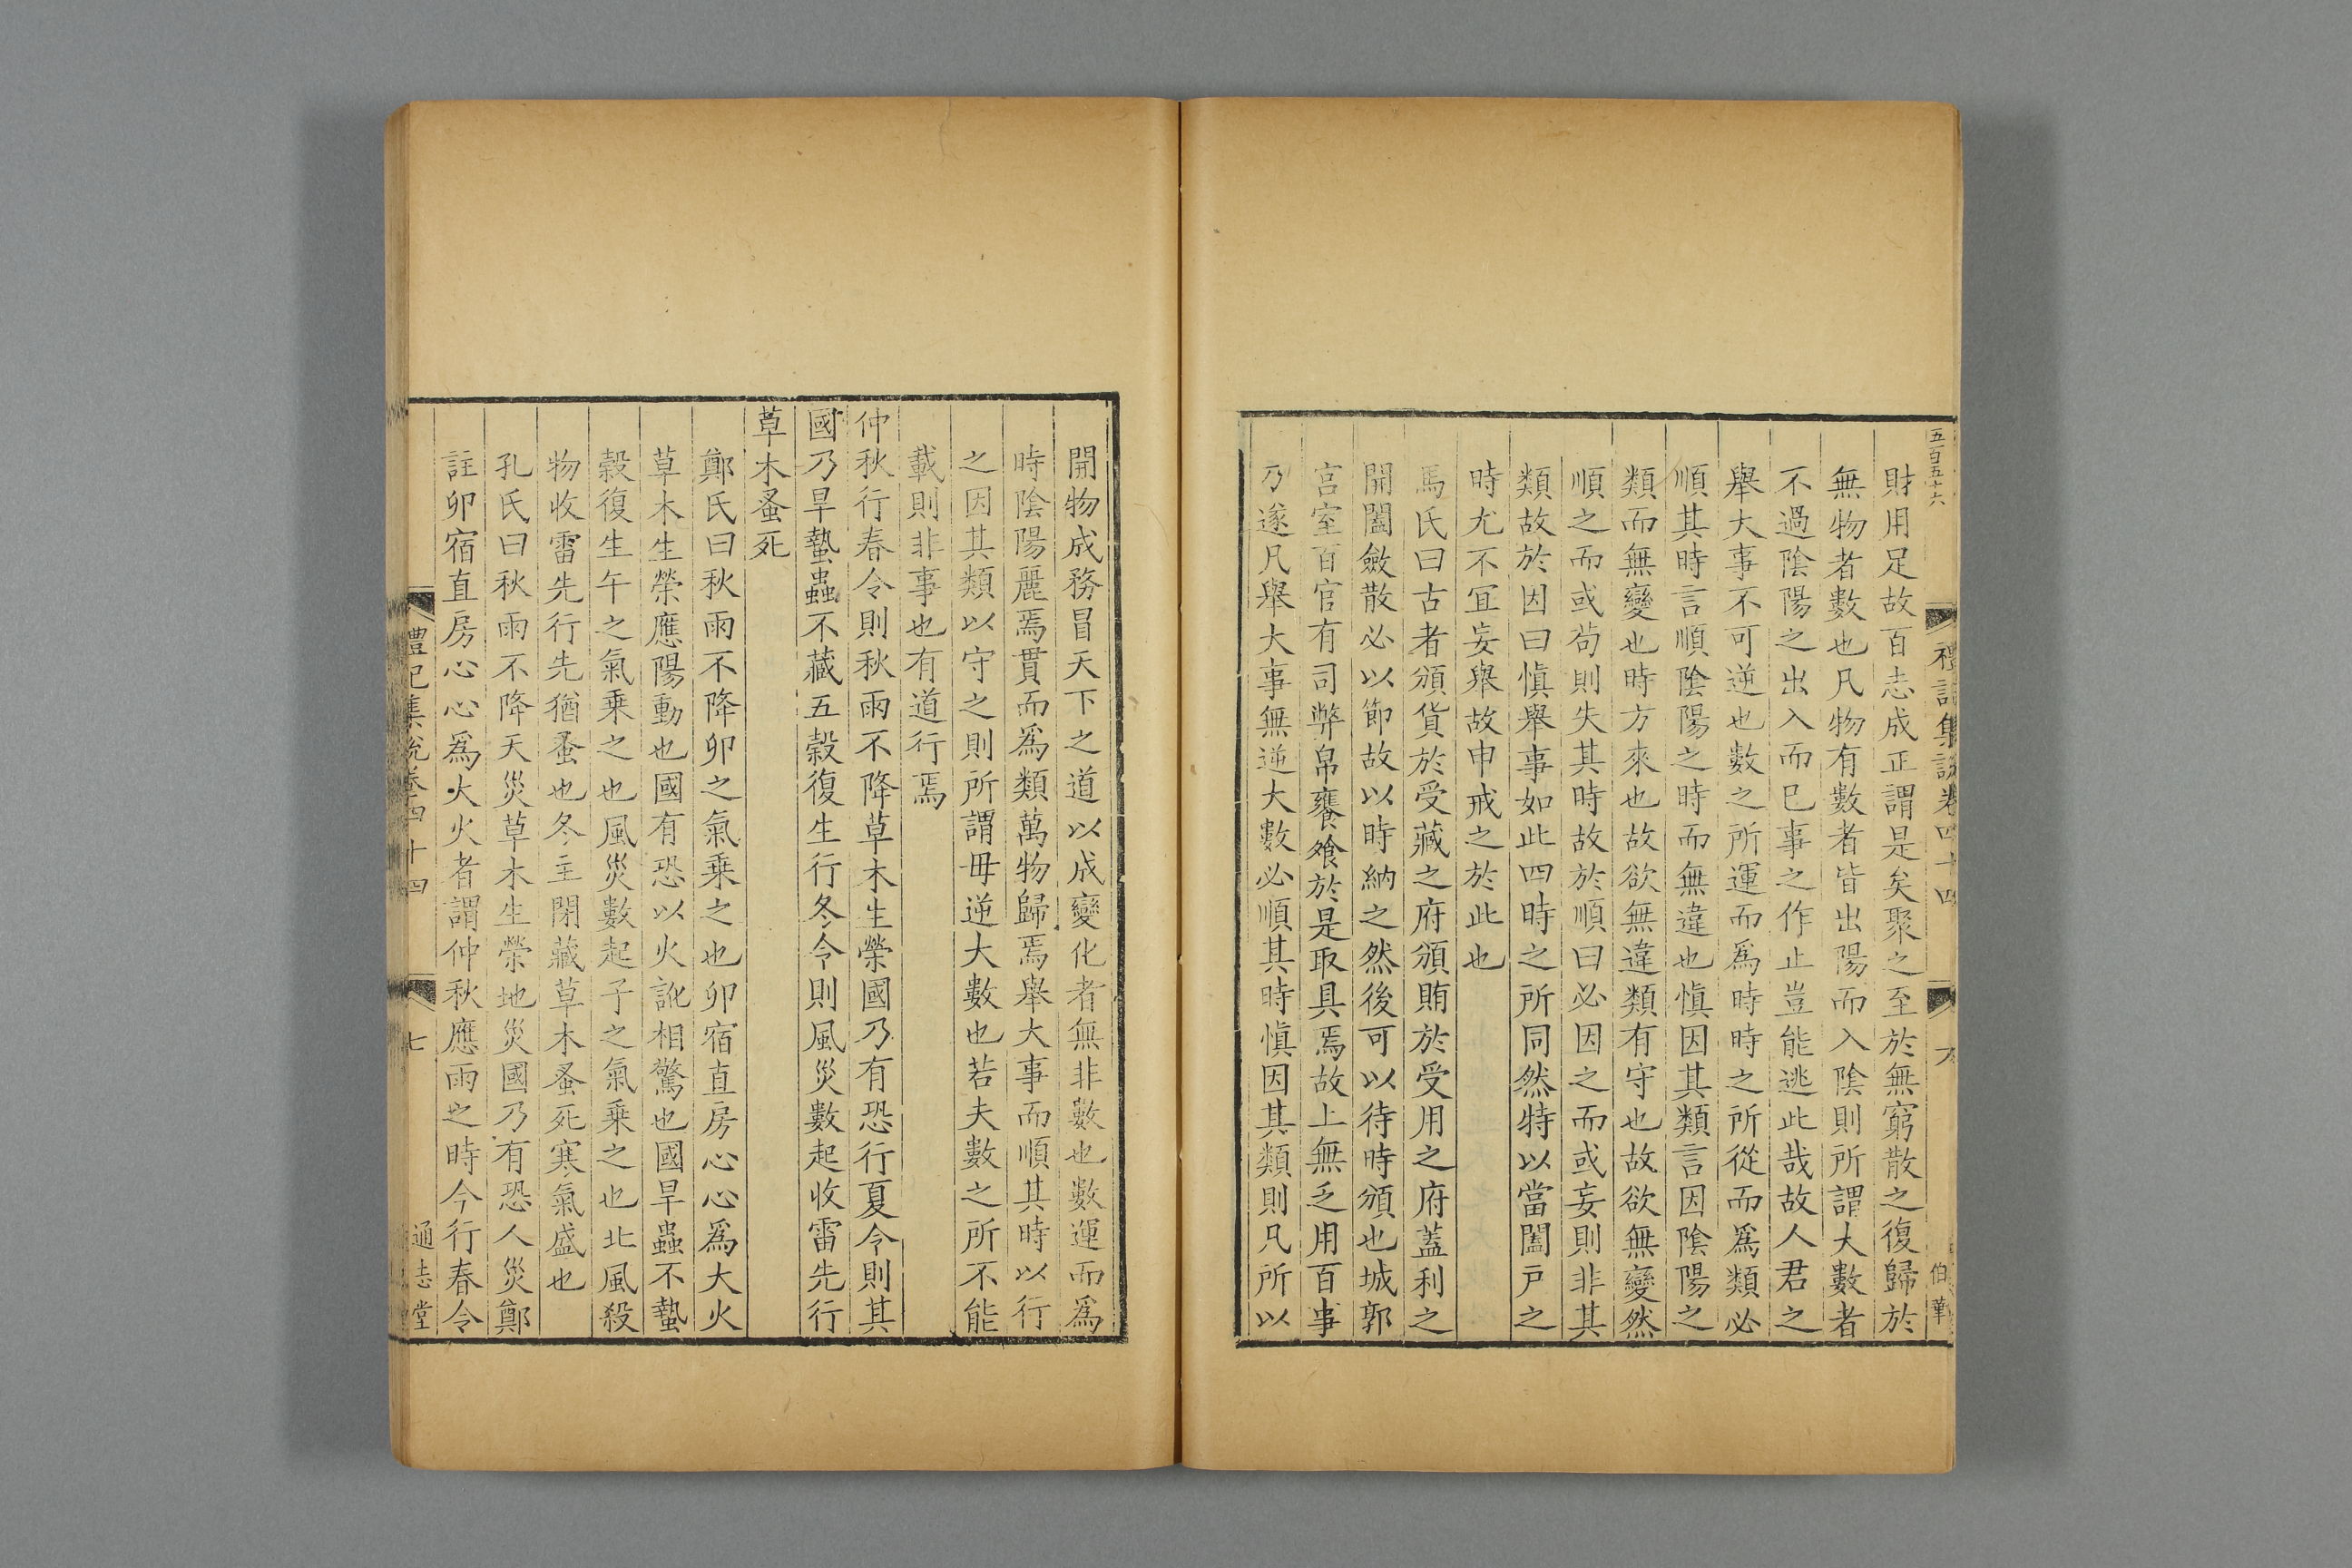 五百五十六
禮記集說卷四十四
六
伯華
財用足故百志成正謂是矣聚之至於無窮散之復歸於
無物者數也凡物有數者皆出陽而入陰則所謂大數者
不過陰陽之出入而已事之作止豈能逃此哉故人君之
舉大事不可逆也數之所運而爲時時之所從而爲類必
順其時言順陰陽之時而無違也愼因其類言因陰陽之
類而無變也時方來也故欲無違類有守也故欲無變然
順之而或茍則失其時故於順曰必因之而或妄則非其
類故於因曰愼舉事如此四時之所同然特以當闔戸之
時尤不宜妄舉故申戒之於此也
馬氏曰古者頒貨於受藏之府頒賄於受用之府蓋利之
開闔斂散必以節故以時納之然後可以待時頒也城郭
宮室百官有司弊帛饔飧於是取具焉故上無乏用百事
乃遂凡舉大事無逆大數必順其時愼因其類則凡所以
開物成務冒天下之道以成變化者無非數也數運而爲
時陰陽麗焉貫而爲類萬物歸焉舉大事而順其時以行
之因其類以守之則所謂毋逆大數也若夫數之所不能
載則非事也有道行焉
仲秋行春令則秋雨不降草木生榮國乃有恐行夏令則其
國乃旱蟄蟲不藏五穀復生行冬令則風災數起收雷先行
草木蚤死
鄭氏曰秋雨不降卯之氣乗之也卯宿直房心心爲大火
草木生榮應陽動也國有恐以火訛相驚也國旱蟲不蟄
穀復生午之氣乗之也風災數起子之氣乗之也北風殺
物收雷先行先猶蚤也冬主閉藏草木蚤死寒氣盛也
孔氏曰秋雨不降天災草木生榮地災國乃有恐人災鄭
註卯宿直房心心爲大火者謂仲秋應雨之時今行春令
禮記集說卷四十四
七
通志堂